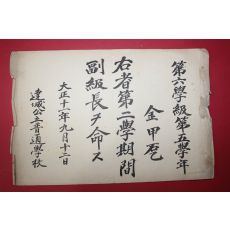 第六學級第五學年
金甲
右者第二學期間
副級長ヲ命ス
大正十一年九月十二日
達城公立普通學校